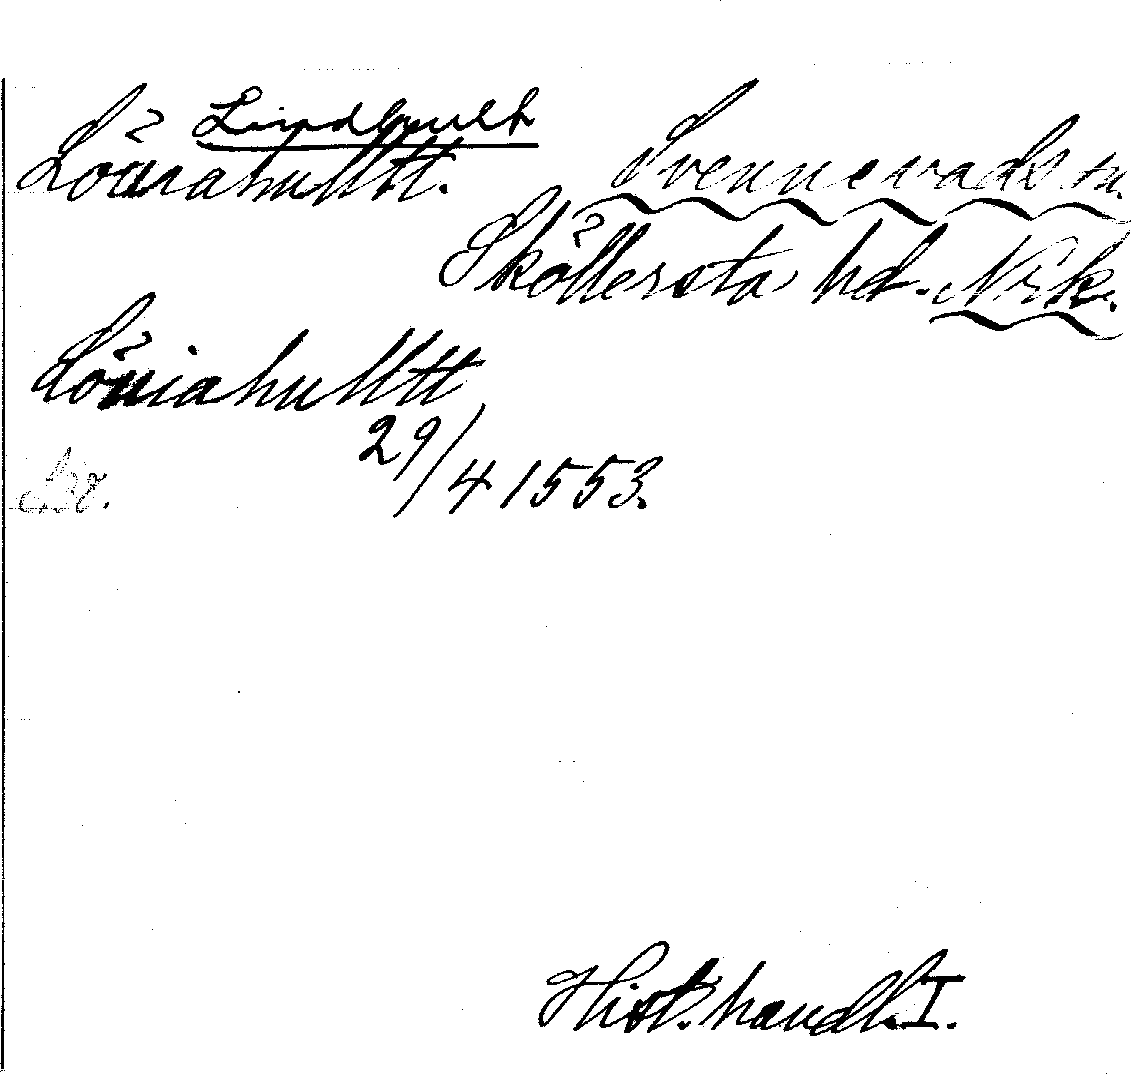 Lindhult
Löuiahulltt. Svennevads sn.
Sköllersta hd. Nrk.
Löuiahulltt
29/4 1553.
Hist. handl. I.